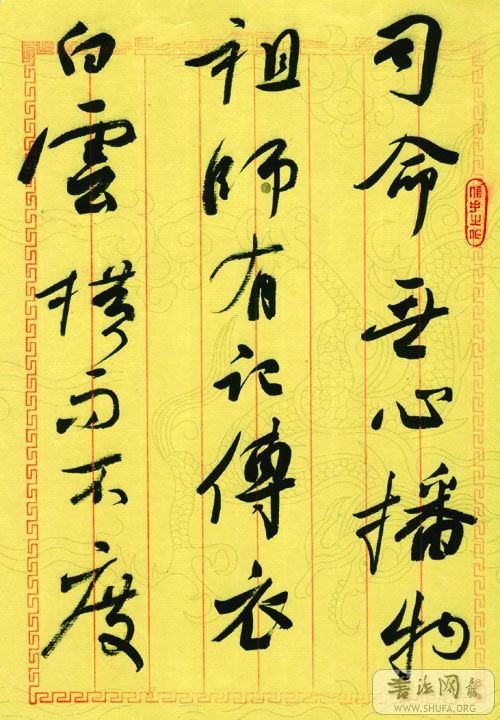 司命无心播物
祖師有記傳衣
白雲橫而不度
書法网報
WWW.SHUFA.ORG